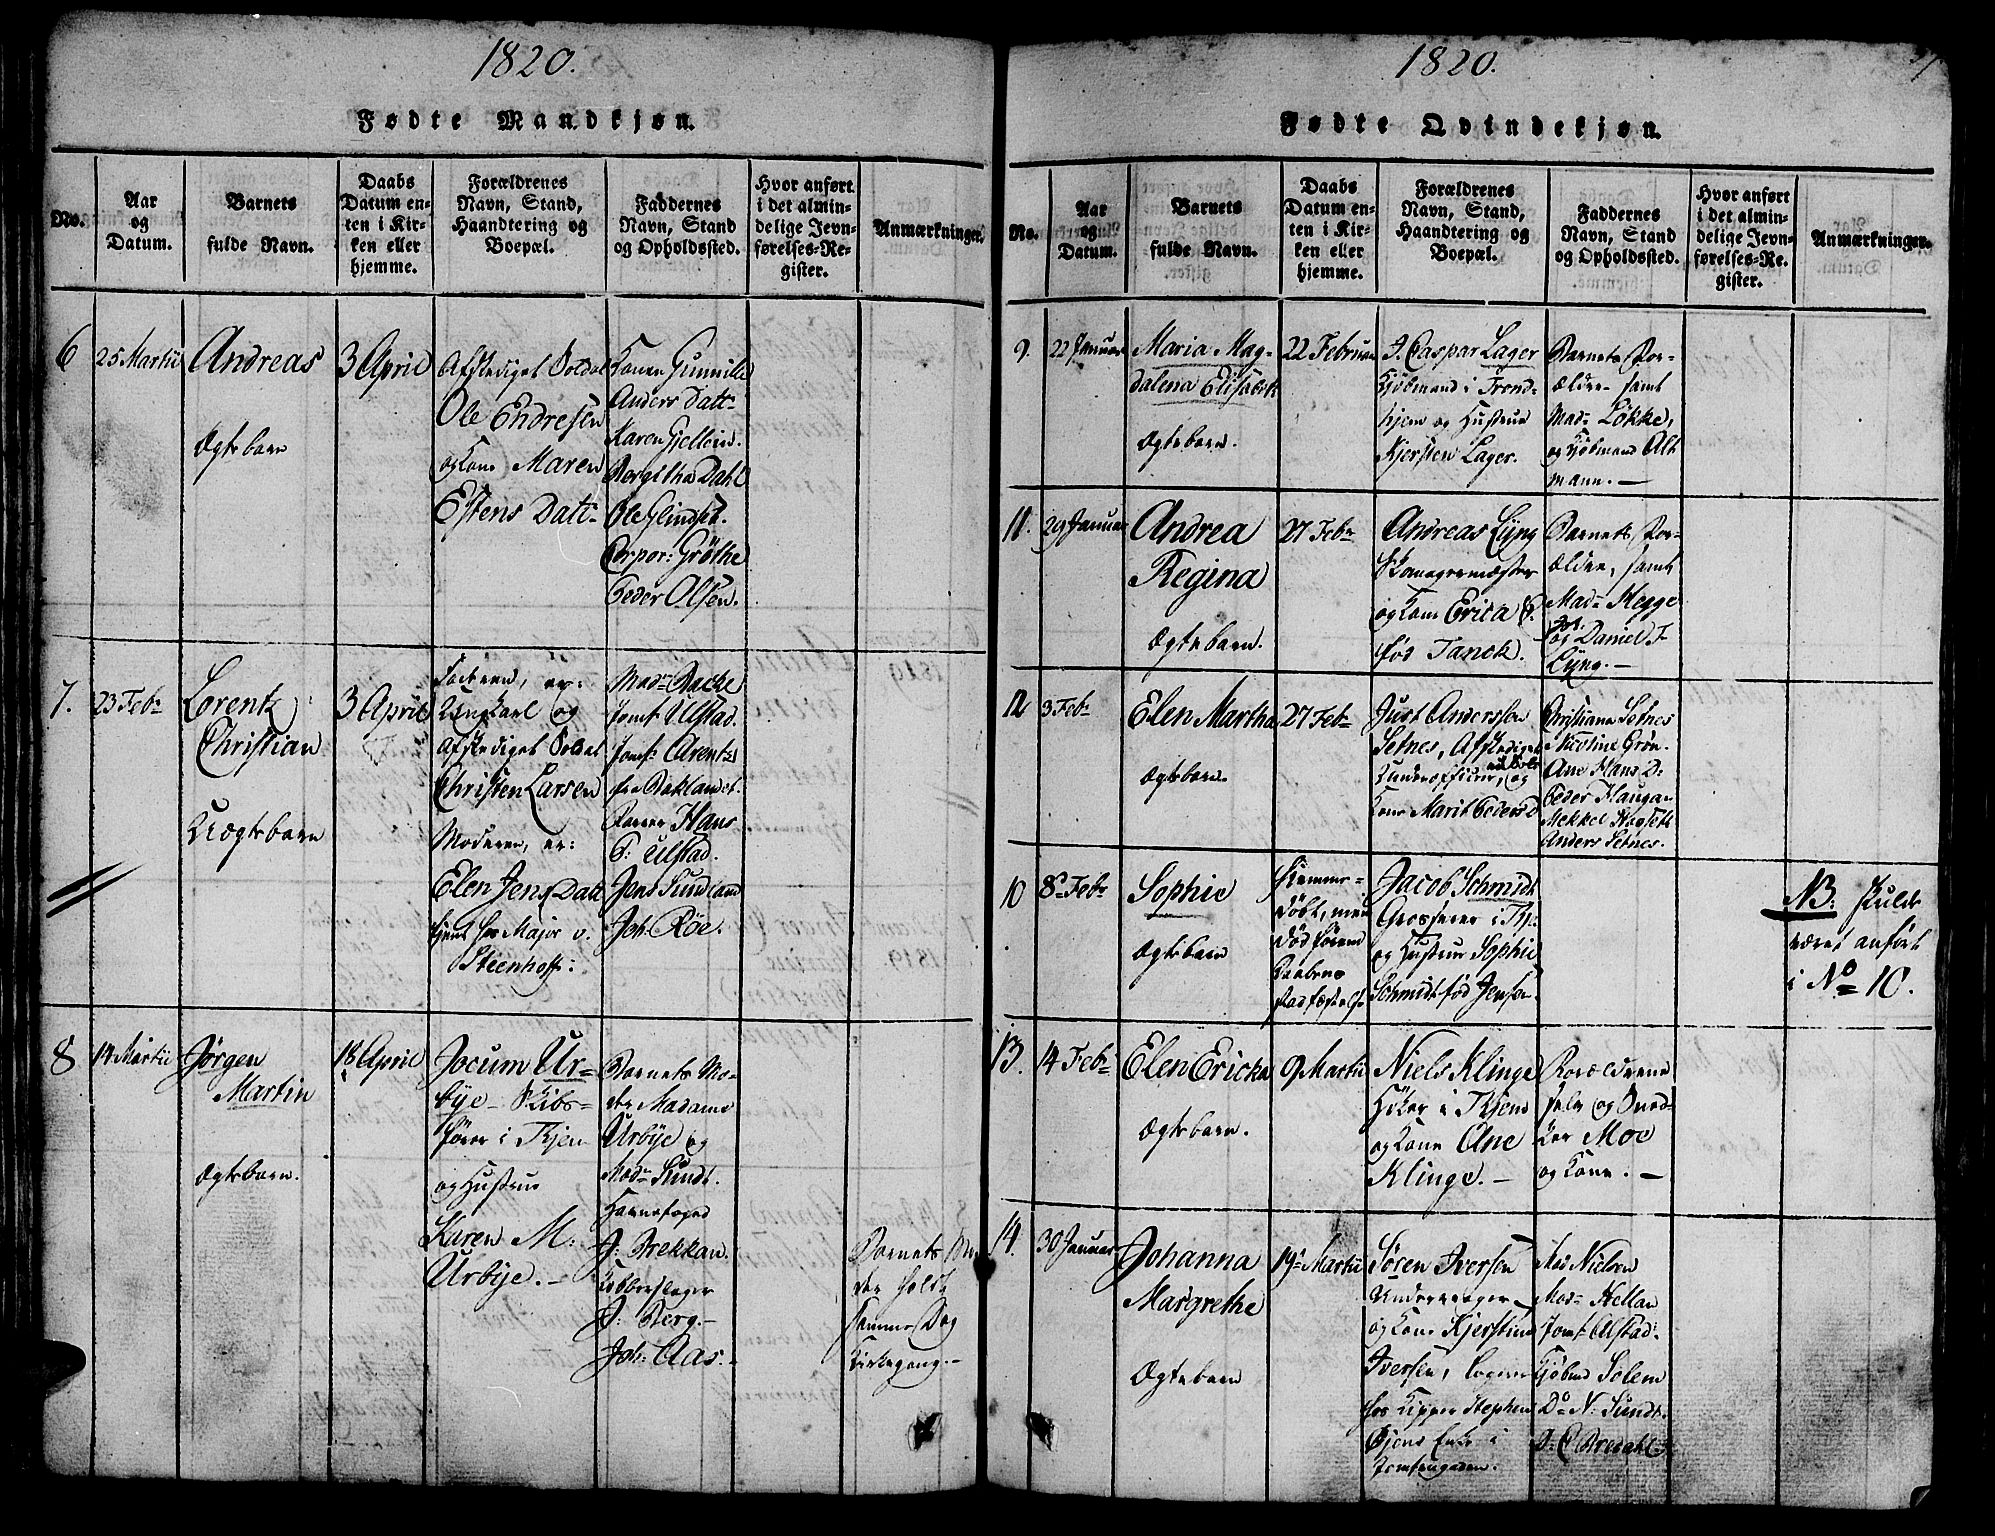 1820.
Fødte Mandkjøn.
No.
Aar
og
Datum.
Barnets
fulde Navn.
Daabs
Datum en-
ten i Kir-
ken eller
hjemme.
Forældrenes
Navn, Stand,
Haandtering og
Boepæl.
Faddernes
Navn, Stand
og Opholdssted.
Hvor anført
i det almin-
delige Jevn-
førelses-Re-
gister.
Anmærkninger.
6
25 Martii
Andreas
Ægtebarn
3 April
Afskediget Soldat
Ole Endresen
og Kone Maren
Estens Datt-
Konen Gunnille
Anders Datt-
Karen Gjellein.
Bergitha Dahl
Ole Glindset.
Corpor: Gröthe
Peder Olsen.
7.
23 Febr
Lorentz
Christian
Uægtebarn
3 April
Faderen, er:
Ungkarl og
Afskediget Soldat
Christen Larsen
Moderen, er:
Elen Jens Datt
tjent hos Major v.
Steenhoff:
Mad: Backe
Jomf: Ulstad
Jomf: Arentz
fra Baklandet.
Hans
P: Ulstad.
Jens Sundland
Joh: Röe.
8
14 Martii
Jørgen
Martin
Ægtebarn.
18 April
Jocum Ur-
bye -
fører i Thjem
og Hustrue
Karen M:
Urbye. -
Barnets Mo-
der Madame
Urbye og
Mad: Sundt.
Havnefoged
J: Brekkan.
Kobberslager
J: Berg. -
Joh: Aas. -
Barnets Mo-
der holdt
samme Dag
Kirkegang. -
1820.
Fødte Qvindekjøn.
No.
Aar
og
Datum.
Barnets
fulde Navn.
Daabs
Datum en-
ten i Kir-
ken eller
hjemme.
Forældrenes
Navn, Stand,
Haandtering og
Boepæl.
Faddernes
Navn, Stand
og Opholdssted.
Hvor anført
i det almin-
delige Jevn-
førelses-Re-
gister.
Anmærkninger.
9.
22 Januar
Maria Mag-
dalena Elisabeth
Ægtebarn.
22 Februar
J. Caspar Lager
Kjøbmand i Trond-
hjem og Hustrue
Kjersten Lager.
Barnets For-
ældre samt
Mad: Løkke,
og Kjøbmand Alt
mann. -
11.
29 Januar
Andrea
Regina
Ægtebarn.
27 Febr
Andreas Lyng
og Kone Erica
fød Tanck.
Barnets For-
ældre, samt
Mad: Hegge
og Daniel F.
Lyng. -
12
3 Febr
Elen Martha
Ægtebarn.
27 Febr
Just Anderssen
Setnes, Afskediget
Underofficier, og
Kone Marit Peders D
Christiana Setnes
Nicoline Grøn.
Ane Hans D:
Peder Haugan
Mekkel Hogseth
Anders Setnes.
10
8 Febr
Sophie
Ægtebarn
Hjemme-
døbt, men
død førend
Daabens
Stadfæstelse
Jacob Schmidt
Grosserer i Thj:
og Hustrue Sophie
Schmidt fød Jensen.
NB: Skulde
været anført
i No 10.
13.
14 Febr
Elen Ericka
Ægtebarn.
9 Martii
Niels Klinge
Høker i Thjem
og Kone Ane
Klinge. -
Forældrene
selv og Sned-
ker Moe
og Kone. -
14.
30 Januar
Johanna
Margrethe
Ægtebarn
19 Martii
Søren Iversen
og Kone Kjerstine
Iversen,
hos Kipper Stephen
Enke i
Jomfrugaden.
Mad Nielsen
Mad: Hellan
Jomf: Ulstad.
Kjøbmd Solem
Do N: Sundt.